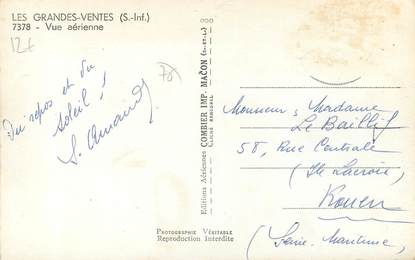 LES GRANDES-VENTES (S.-Inf.)
7378 - Vue aérienne
12€
78
Du repos et du
soleil !
S. Amand
Editions Aériennes COMBIER IMP. MACON (S.-et-L.)
Cliché Ranchet
Monsieur & Madame
Le Baillif
58, Rue Centrale
(Ile Lacroix)
Rouen
(Seine-Maritime)
PHOTOGRAPHIE VÉRITABLE
Reproduction Interdite